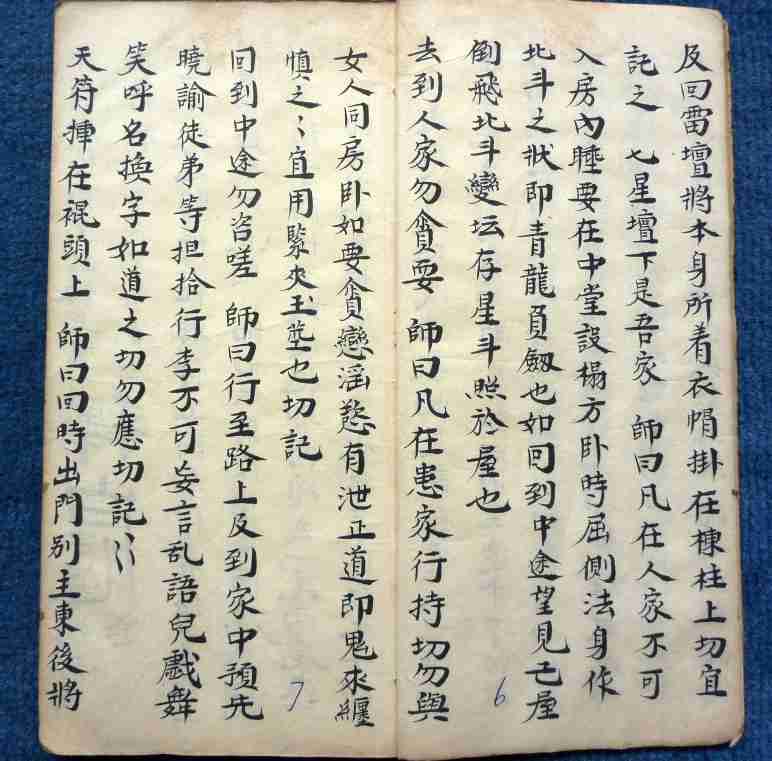 及回雷壇將本身所着衣帽掛在棟柱上切宜
託之 七星壇下是吾家 師曰凡在人家不可
入房內睡要在中堂設榻方卧時屈側法身作
北斗之狀即青龍負劔也如回到中途望見己屋
倒飛北斗變坛存星斗照於屋也
去到人家勿貪耍 師曰凡在患家行持切勿與
6
女人同房卧如要貪戀滛慾有泄正道即鬼來纏
慎之〻宜用緊夾玉莖也切記
回到中途勿咨嗟 師曰行至路上及到家中預先
曉諭徒弟等担拾行李不可妄言乱語兒戱舞
笑呼名換字如道之切勿應切記〻
天符揷在裩頭上 師曰回時出門别主東後將
7